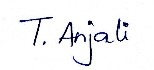 T. Anjali